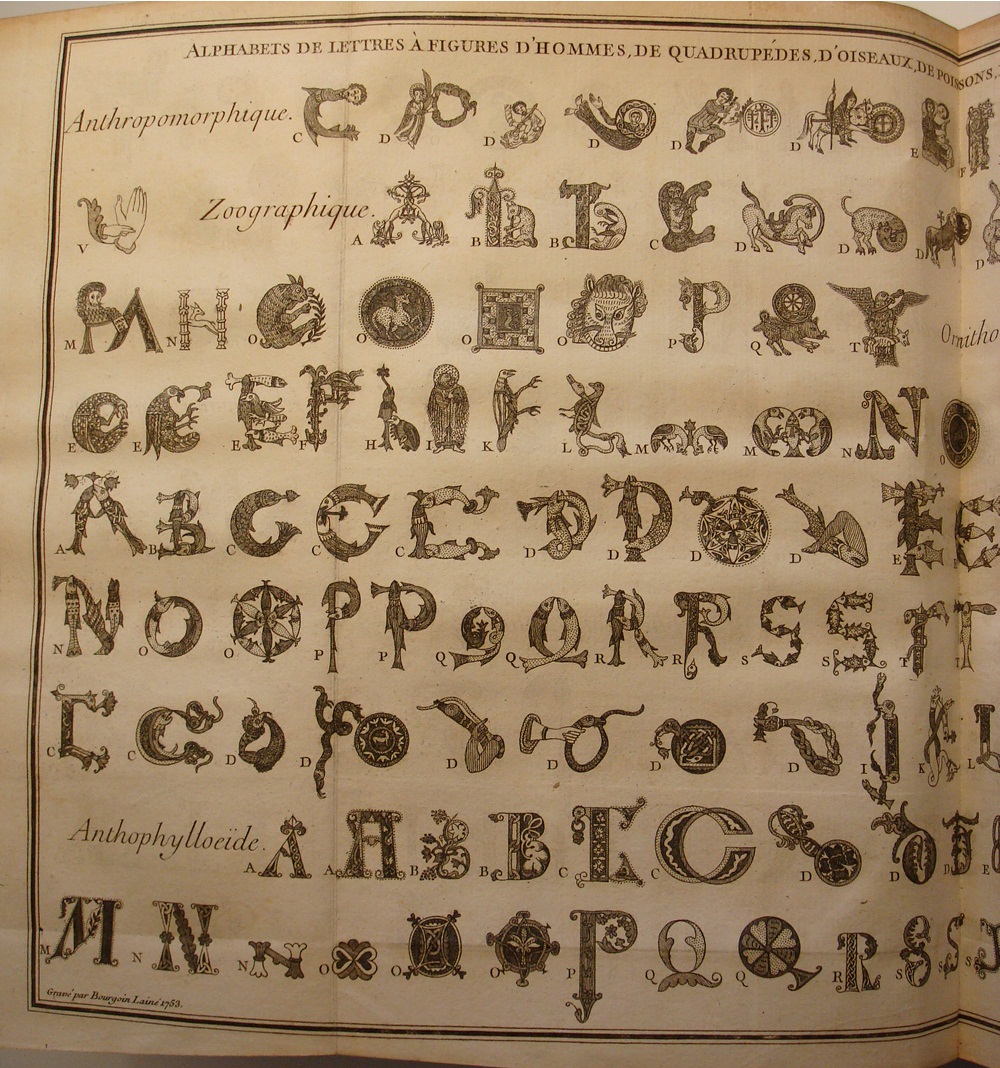 ALPHABETS DE LETTRES À FIGURES D'HOMMES, DE QUADRUPÉDES, D'OISEAUX, DE POISSONS,
Anthropomorphique. C D D D D D E F
V Zoographique. A B B C D D D D
M N O O O O P Q T Ornitho
E E E F H I K L M M N O
A B C C C D D D D E
N O O P P Q Q R R S S T T
C C D D D D D D I K L
Anthophylloeïde. A A B B C C D D D E
M N N O O O P Q Q R S S S
Gravé par Bourgoin Lainé 1753.